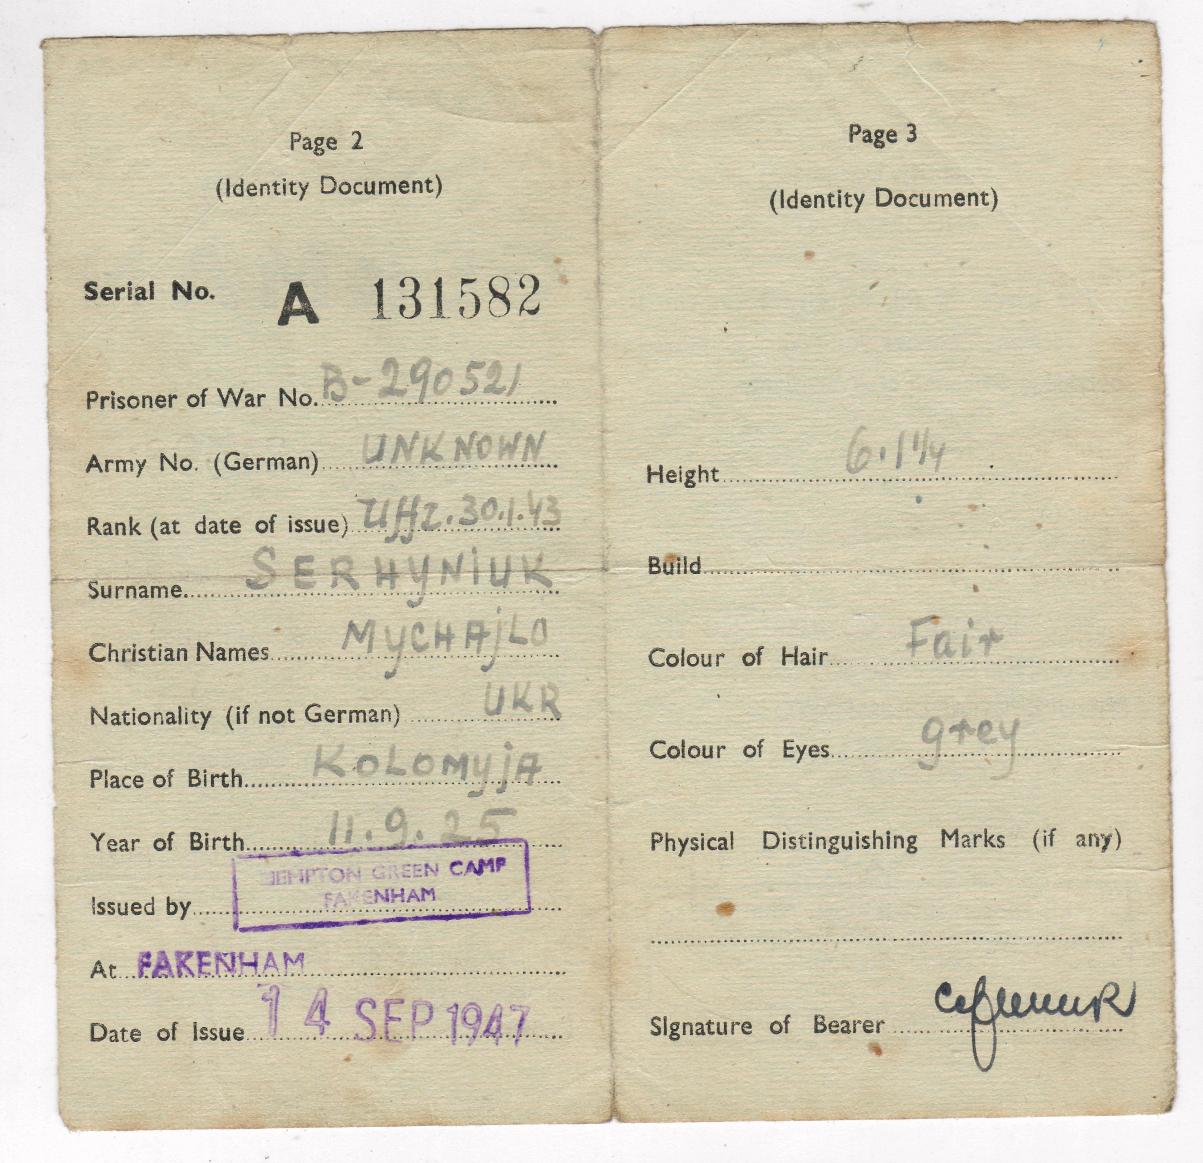 Page 2
(Identity Document)
Serial No. A 131582
Prisoner of War No. B-290521
Army No. (German) UNKNOWN
Rank (at date of issue) Uffz. 30.1.43
Surname SERHYNiUK
Christian Names MyCHAjLO
Nationality (if not German) UKR
Place of Birth KOLOMyjA
Year of Birth 11.9.25
Issued by HEMPTON GREEN CAMP
FAKENHAM
At FAKENHAM
Date of Issue 14 SEP 1947
Page 3
(Identity Document)
Height 6.1 1/4
Build
Colour of Hair Fair
Colour of Eyes grey
Physical Distinguishing Marks (if any)
Signature of Bearer